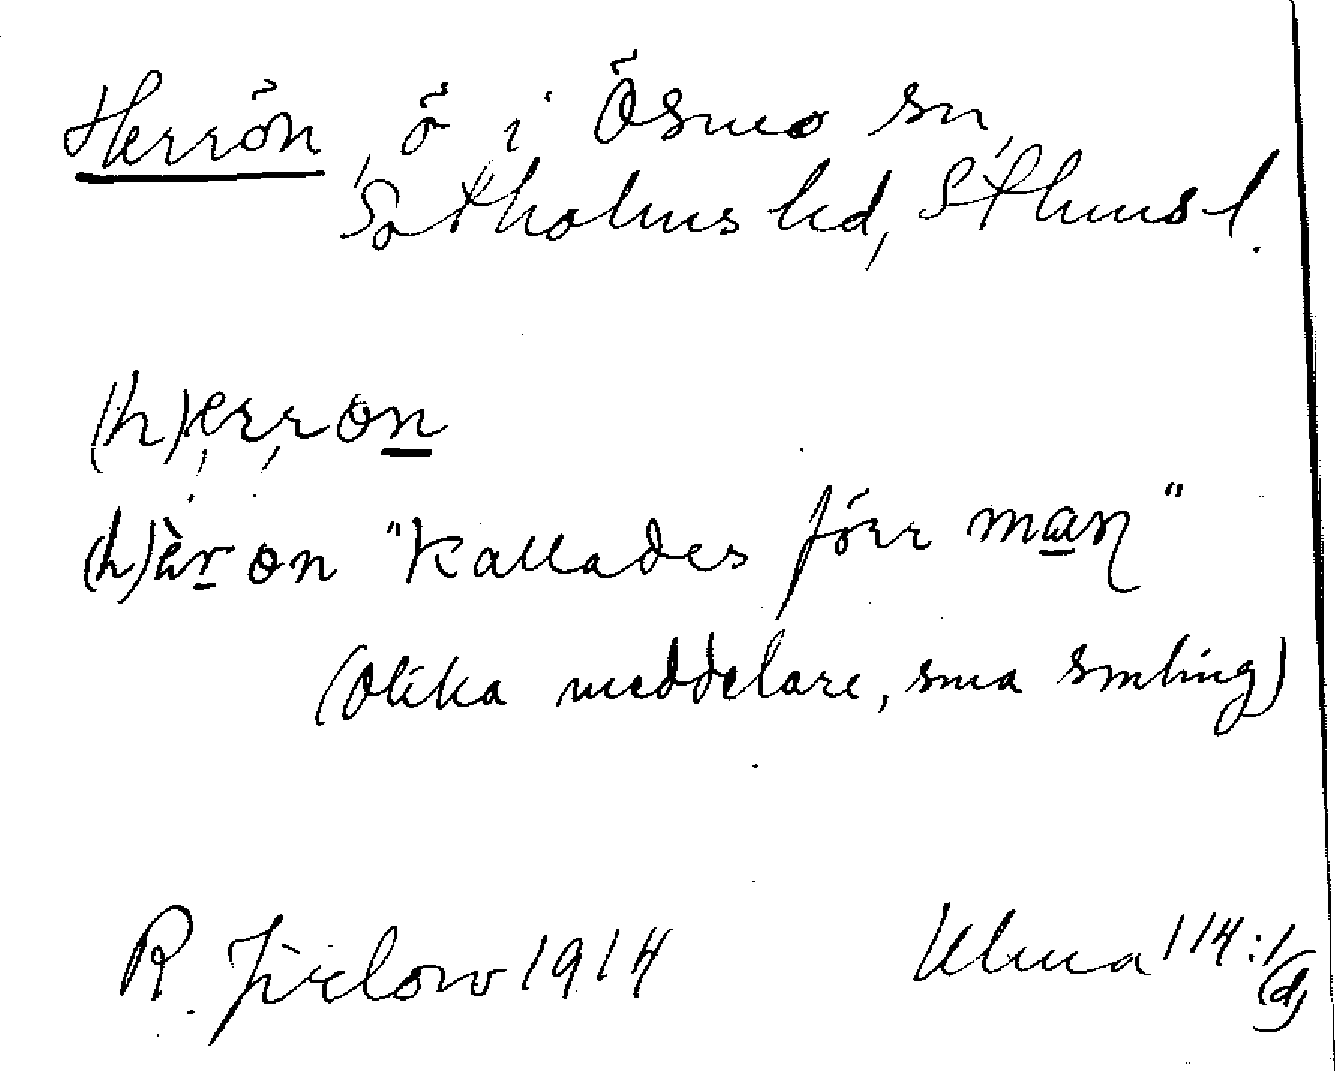 Herrön, ö i Ösmo sn,
Sotholms hd, Sthms l.
(h)ęr,rön
(h)èrön "kallades förr man"
(olika meddelare, sma smling)
R. Jirlow 1914 Ulma 114:1
(d)